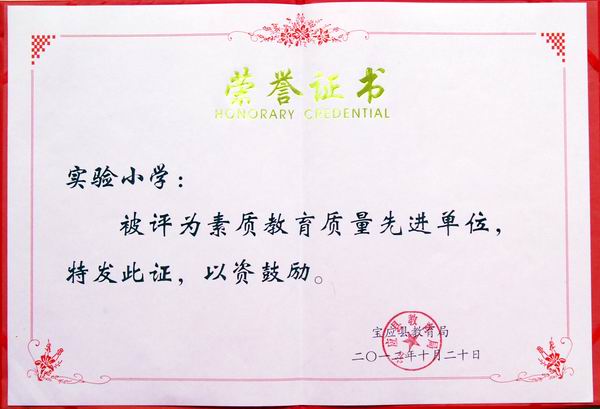 荣誉证书
HONORARY CREDENTIAL
实验小学：
被评为素质教育质量先进单位，
特发此证，以资鼓励。
宝应县教育局
二〇一二年十月二十日